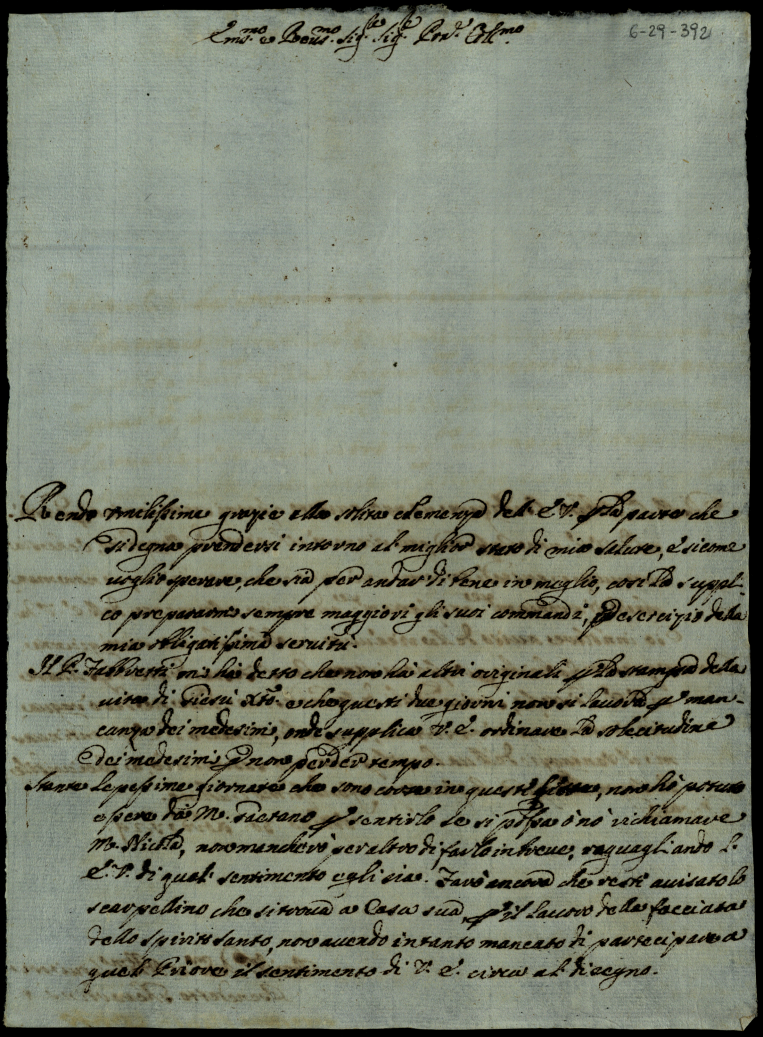 6-29-392
Em.mo e Reu.mo Sig.re Sig.re Pro.n Coll.mo
Rendo umilissime grazie alla solita clemenza dell' E.V. p la parte che
si degna prendersi intorno al miglior stato di mia salute, e si come
uoglio sperare, che sia per andar di bene in meglio, così la suppli-
co prepararmi sempre maggiori gli suoi commandi, p esercizio della
mia obligatissima seruitù.
Il P. mi ha detto che non ha altri originali p la stampa della
vita di Giesù Xto. e che questi due giorni non si lauora p man-
canza dei medesimi, onde supplica V.E. ordinare la sollecitudine
dei medesimi p non perder tempo.
Stante le pessime giornate che sono corse in questi, non hò potuto
essere da M. Gaetano p sentirlo se si possa ò nò richiamare
M. Nicola, non mancherò per altro di farlo in breue, raguagliando l'
E.V. di qual sentimento egli sia. Farò ancora che resti auisato lo
scarpellino che si troua a Casa sua, p il lauoro della facciata
dello Spirito Santo, non auendo intanto mancato di partecipare a
quel Priore il sentimento di V.E. circa al disegno.